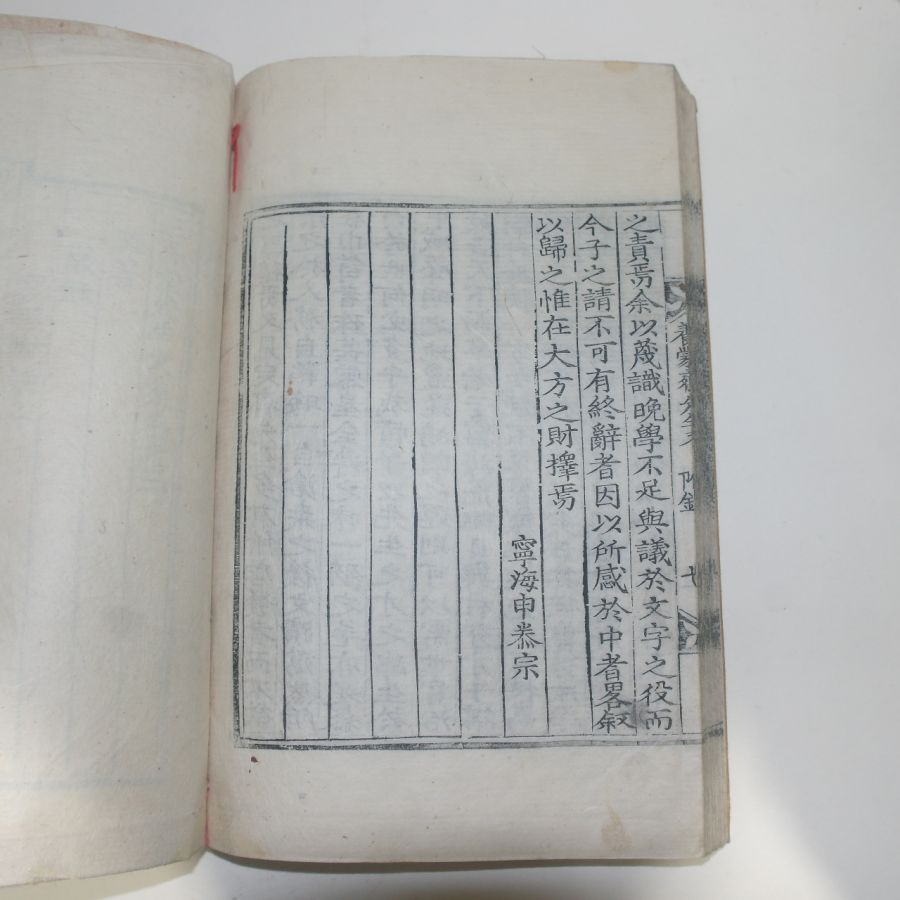 之責焉余以蔑識晚學不足與議於文字之役而
今子之請不可有終辭者因以所感於中者畧叙
以歸之惟在大方之財擇焉
寧海申泰宗
附錄